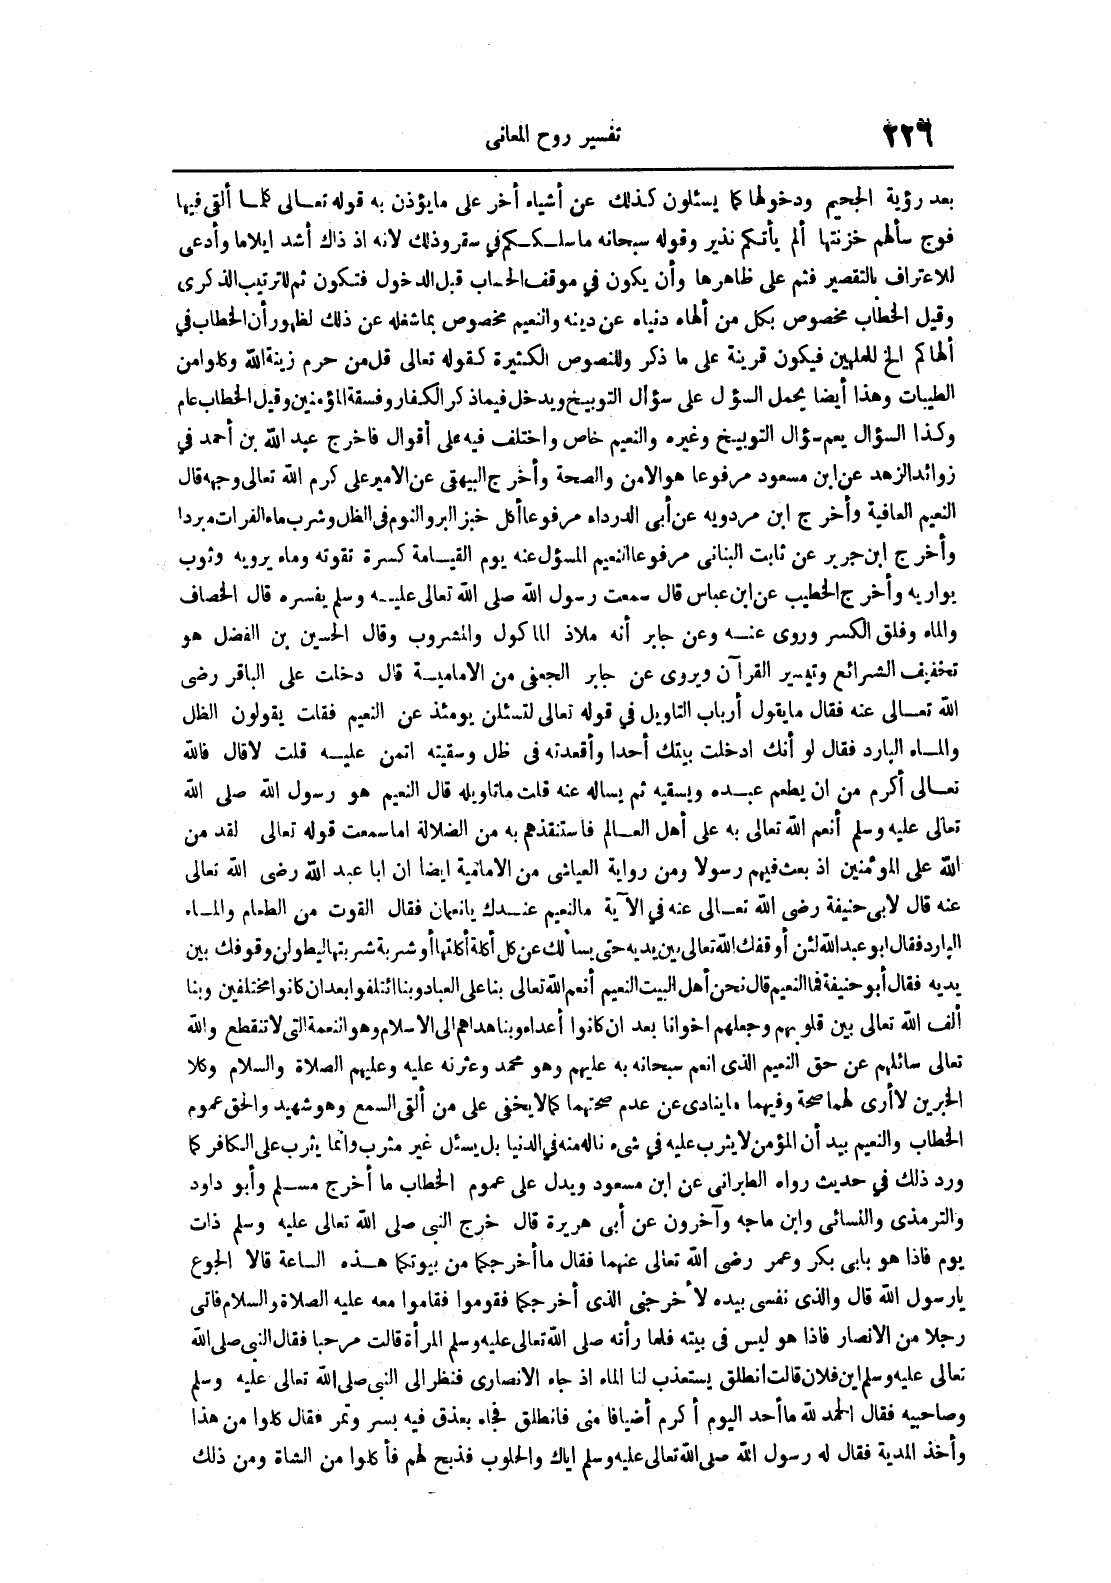 ٢٢٦
تفسير روح المعانى
بعد رؤية الجحيم ودخولها كما يسئلون كذلك عن أشياء أخر على ما يؤذن به قوله تعالى كلما ألقى فيها
فوج سألهم خزنتها ألم يأتكم نذير وقوله سبحانه ما سلككم في سقر وذلك لانه اذ ذاك أشد ايلاما وأدعى
للاعتراف بالتقصير فثم على ظاهرها وأن يكون في موقف الحساب قبل الدخول فتكون ثم للترتيب الذكرى
وقيل الخطاب مخصوص بكل من ألهاه دنياه عن دينه والنعيم مخصوص بما شغله عن ذلك لظهور أن الخطاب في
ألهاكم الخ للملهين فيكون قرينة على ما ذكر وللنصوص الكثيرة كقوله تعالى قل من حرم زينة الله وكلوا من
الطيبات وهذا أيضا يحمل السؤل على سؤال التوبيخ ويدخل فيما ذكر الكفار وفسقة المؤمنين وقيل الخطاب عام
وكذا السؤال يعم سؤال التوبيخ وغيره والنعيم خاص واختلف فيه على أقوال فاخرج عبد الله بن أحمد في
زوائد الزهد عن ابن مسعود مرفوعا هو الامن والصحة وأخرج البيهقى عن الامير على كرم الله تعالى وجهه قال
النعيم العافية وأخرج ابن مردويه عن أبى الدرداء مرفوعا أكل خبز البر والنوم فى الظل وشرب ماء الفرات مبردا
وأخرج ابن جرير عن ثابت البنانى مرفوعا النعيم المسؤل عنه يوم القيامة كسرة تقوته وماء يرويه وثوب
يواريه وأخرج الخطيب عن ابن عباس قال سمعت رسول الله صلى الله تعالى عليه وسلم يفسره قال الخصاف
والماء وفلق الكسر وروى عنه وعن جابر أنه ملاذ المأكول والمشروب وقال الحسين بن الفضل هو
تخفيف الشرائع وتيسير القرآن ويروى عن جابر الجعفى من الامامية قال دخلت على الباقر رضى
الله تعالى عنه فقال ما يقول أرباب التاويل في قوله تعالى لتسئلن يومئذ عن النعيم فقلت يقولون الظل
والماء البارد فقال لو أنك ادخلت بيتك أحدا وأقعدته فى ظل وسقيته اتمن عليه قلت لا قال فالله
تعالى أكرم من ان يطعم عبده ويسقيه ثم يساله عنه قلت ما تاويله قال النعيم هو رسول الله صلى الله
تعالى عليه وسلم أنعم الله تعالى به على أهل العالم فاستنقذهم به من الضلالة اما سمعت قوله تعالى لقد من
الله على المؤمنين اذ بعث فيهم رسولا ومن رواية العياشى من الامامية ايضا ان ابا عبد الله رضى الله تعالى
عنه قال لابى حنيفة رضى الله تعالى عنه في الآية ما النعيم عندك يا نعمان فقال القوت من الطعام والماء
البارد فقال ابو عبد الله لئن أوقفك الله تعالى بين يديه حتى يسألك عن كل أكلة أكلتها أو شربة شربتها ليطولن وقوفك بين
يديه فقال أبو حنيفة فما النعيم قال نحن أهل البيت النعيم أنعم الله تعالى بنا على العباد وبنا ائتلفوا بعد ان كانوا مختلفين وبنا
ألف الله تعالى بين قلوبهم وجعلهم اخوانا بعد ان كانوا أعداء وبنا هداهم الى الاسلام وهو النعمة التى لا تنقطع والله
تعالى سائلهم عن حق النعيم الذى انعم سبحانه به عليهم وهو محمد وعترته عليه وعليهم الصلاة والسلام وكلا
الخبرين لا أرى لهما صحة وفيهما ما ينادى عن عدم صحتهما كما لا يخفى على من ألقى السمع وهو شهيد والحق عموم
الخطاب والنعيم بيد أن المؤمن لا يثرب عليه في شىء ناله منه في الدنيا بل يسئل غير مثرب وانما يثرب على الكافر كما
ورد ذلك في حديث رواه الطبرانى عن ابن مسعود ويدل على عموم الخطاب ما أخرج مسلم وأبو داود
والترمذى والنسائى وابن ماجه وآخرون عن أبى هريرة قال خرج النبى صلى الله تعالى عليه وسلم ذات
يوم فاذا هو بابى بكر وعمر رضى الله تعالى عنهما فقال ما أخرجكما من بيوتكما هذه الساعة قالا الجوع
يا رسول الله قال والذى نفسى بيده لأخرجنى الذى أخرجكما فقوموا فقاموا معه عليه الصلاة والسلام فاتى
رجلا من الانصار فاذا هو ليس فى بيته فلما رأته صلى الله تعالى عليه وسلم المرأة قالت مرحبا فقال النبى صلى الله
تعالى عليه وسلم اين فلان قالت انطلق يستعذب لنا الماء اذ جاء الانصارى فنظر الى النبى صلى الله تعالى عليه وسلم
وصاحبيه فقال الحمد لله ما أحد اليوم أكرم أضيافا منى فانطلق فجاء بعذق فيه بسر وتمر فقال كلوا من هذا
وأخذ المدية فقال له رسول الله صلى الله تعالى عليه وسلم اياك والحلوب فذبح لهم فأكلوا من الشاة ومن ذلك